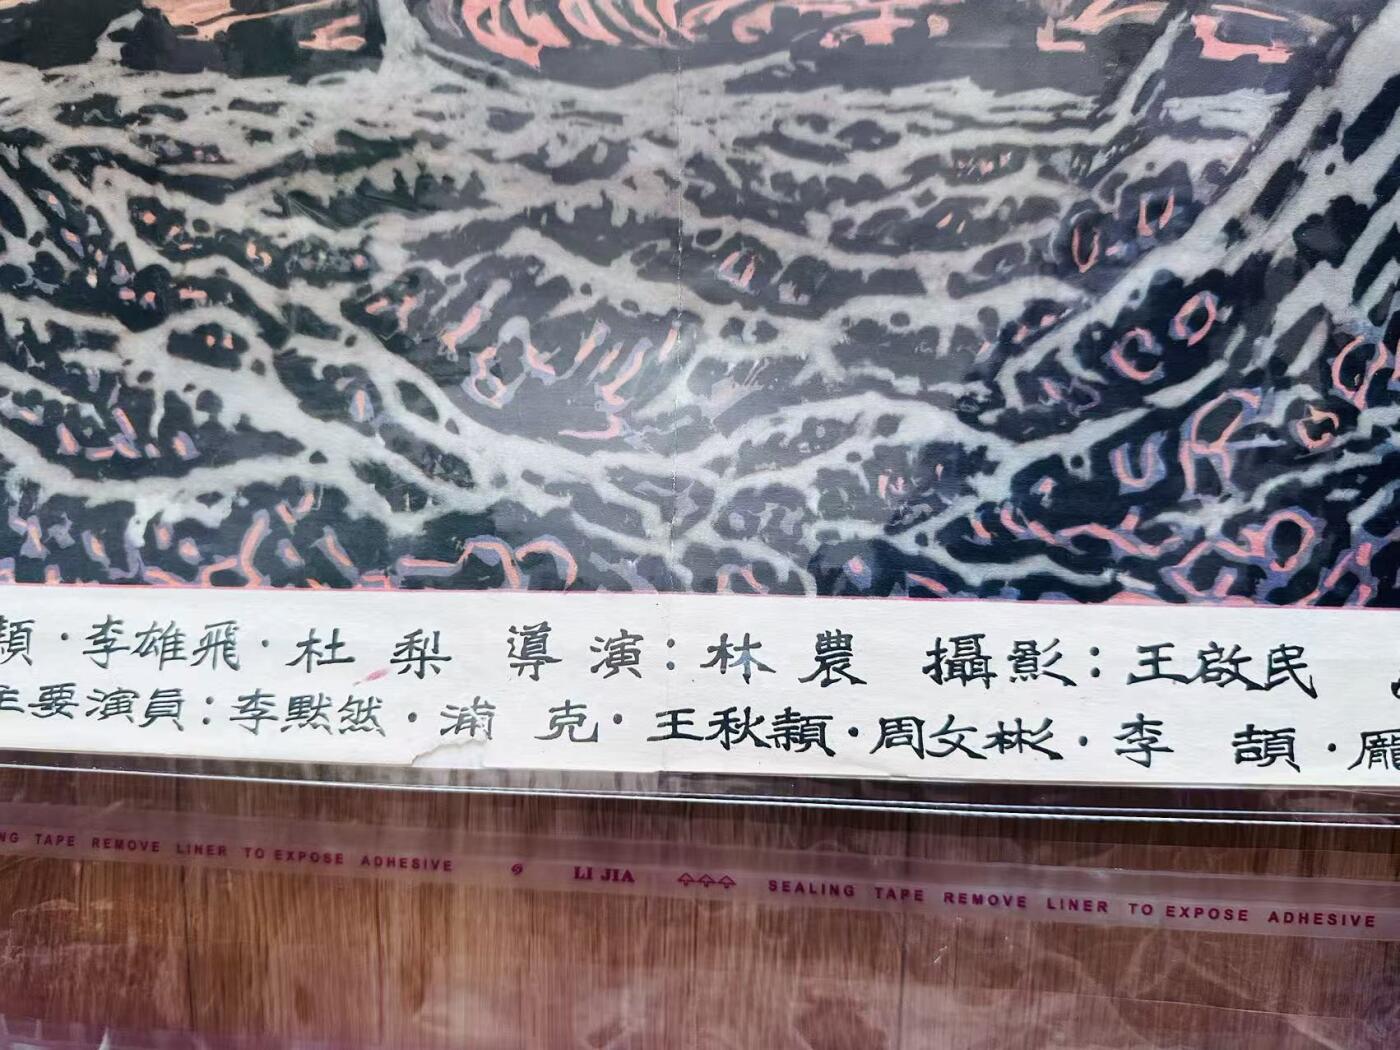 李雄飛·杜 梨 導 演：林 農 攝影：王啟民
主要演員：李默然·浦 克·王秋穎·周文彬·李 頡·龐
TAPE REMOVE LINER TO EXPOSE ADHESIVE LI JIA SEALING TAPE REMOVE LINER TO EXPOSE ADHESIVE